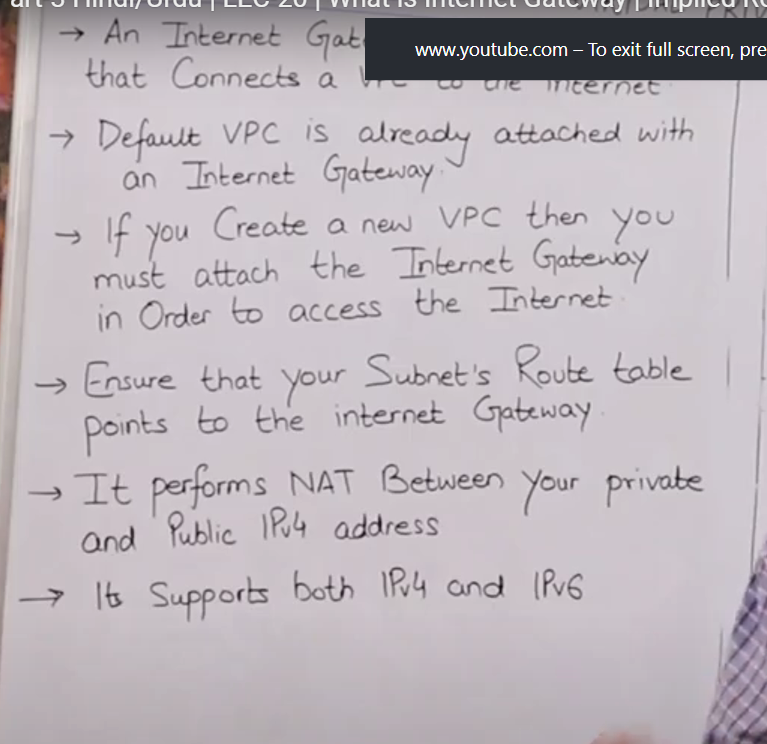 art 3 Hindi/Urdu | LEC-20 | What is Internet Gateway | Implied Ro
www.youtube.com – To exit full screen, pre
→ An Internet Gat
that Connects a VPC to the internet
→ Default VPC is already attached with
an Internet Gateway.
→ If you Create a new VPC then you
must attach the Internet Gateway
in Order to access the Internet.
→ Ensure that your Subnet's Route table
points to the internet Gateway.
→ It performs NAT Between your private
and Public IPv4 address
→ Its Supports both IPv4 and IPv6